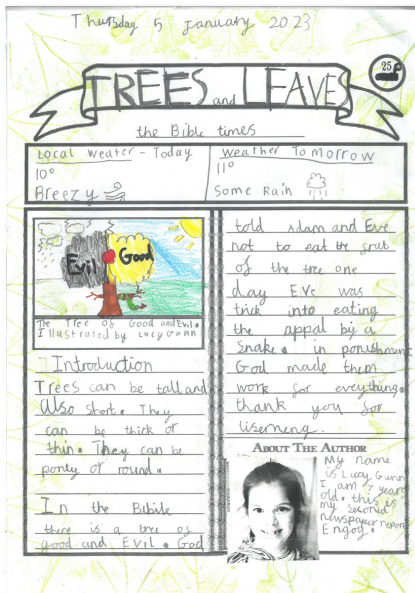 Thursday 5 January 2023
25p
TREES and LEAVES
the Bible times
Local weater - Today
10°
Breezy
Weather Tomorrow
11°
Some Rain
Evil
Good
The Tree of Good and Evil.
Illustrated by Lucy Gunn
Introduction
Trees can be tall and
Also short. They
can be thick or
thin. They can be
ponty or round.
In the Bibile
there is a tree of
good and Evil. God
told Adam and Eve
not to eat the fruit
of the tree one
day Eve was
trick into eating
the appal by a
snake. in ponushment
God made them
work for eveything.
thank you for
liserneng.
ABOUT THE AUTHOR
My name
is Lucy Gunn
I am 7 years
old. this is
my second
newspaper report
Engoy.